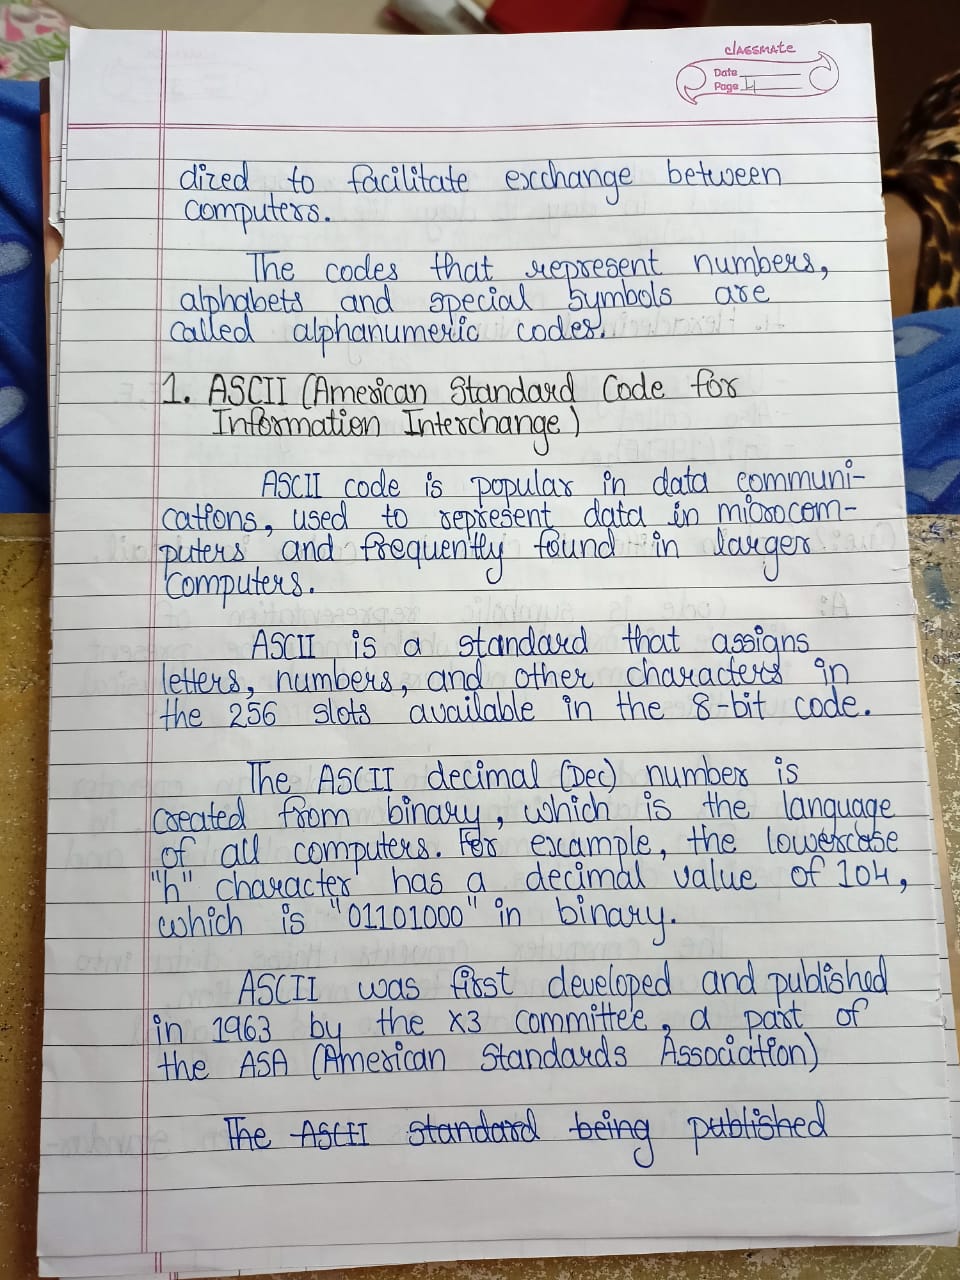 classmate
Date
Page 4
dized to facilitate exchange between
computers.
The codes that represent numbers,
alphabets and special symbols are
called alphanumeric codes.
1. ASCII (American Standard Code for
Information Interchange)
ASCII code is popular in data communi-
cations, used to represent data in microcom-
puters and frequently found in larger
computers.
ASCII is a standard that assigns
letters, numbers, and other characters in
the 256 slots available in the 8-bit code.
The ASCII decimal (Dec) number is
created from binary, which is the language
of all computers. For example, the lowercase
"h" character has a decimal value of 104,
which is "01101000" in binary.
ASCII was first developed and published
in 1963 by the X3 committee, a part of
the ASA (American Standards Association)
The ASCII standard being published